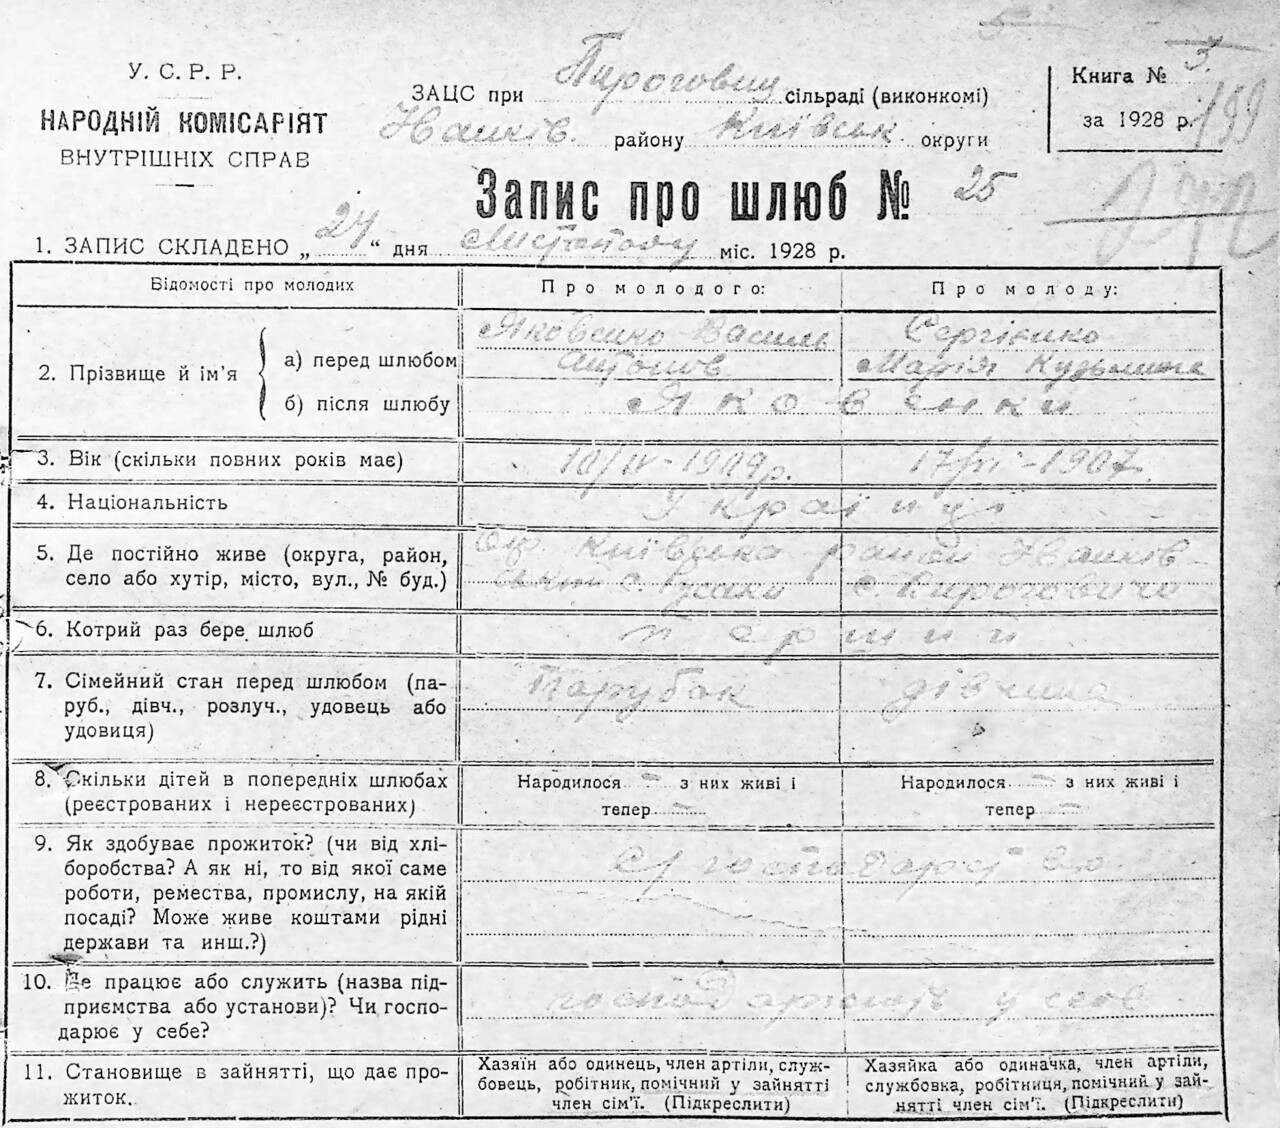 У. С. Р. Р.
НАРОДНІЙ КОМІСАРІЯТ
ВНУТРІШНІХ СПРАВ
ЗАЦС при Пирогович сільраді (виконкомі)
району Київськ. округи
Книга № 3
за 1928 р. 199
Запис про шлюб № 25
1. ЗАПИС СКЛАДЕНО „ 24 “ дня Листопаду міс. 1928 р.
Відомості про молодих
Про молодого:
Про молоду:
2. Прізвище й ім’я
а) перед шлюбом
Яковенко Василь
Антонов
Сергієнко
Марія Кузьмина
б) після шлюбу
Яковенки
3. Вік (скільки повних років має)
10/IV-1909р.
1907
4. Національність
Українці
5. Де постійно живе (округа, район,
село або хутір, місто, вул., № буд.)
Окр Київська район
с. с. Пироговичи
6. Котрий раз бере шлюб
перший
7. Сімейний стан перед шлюбом (па-
руб., дівч., розлуч., удовець або
удовиця)
Парубок
дівчина
8. Скільки дітей в попередніх шлюбах
(реєстрованих і нереєстрованих)
Народилося - з них живі і
тепер -
Народилося - з них живі і
тепер -
9. Як здобуває прожиток? (чи від хлі-
боробства? А як ні, то від якої саме
роботи, ремества, промислу, на якій
посаді? Може живе коштами рідні
держави та инш.?)
с/господарством
10. Де працює або служить (назва під-
приємства або установи)? Чи госпо-
дарює у себе?
господарюють у себе
11. Становище в зайнятті, що дає про-
житок.
Хазяїн або одинець, член артіли, служ-
бовець, робітник, помічний у зайнятті
член сім’ї. (Підкреслити)
Хазяйка або одиначка, член артіли,
службовка, робітниця, помічний у зай-
нятті член сім’ї. (Підкреслити)